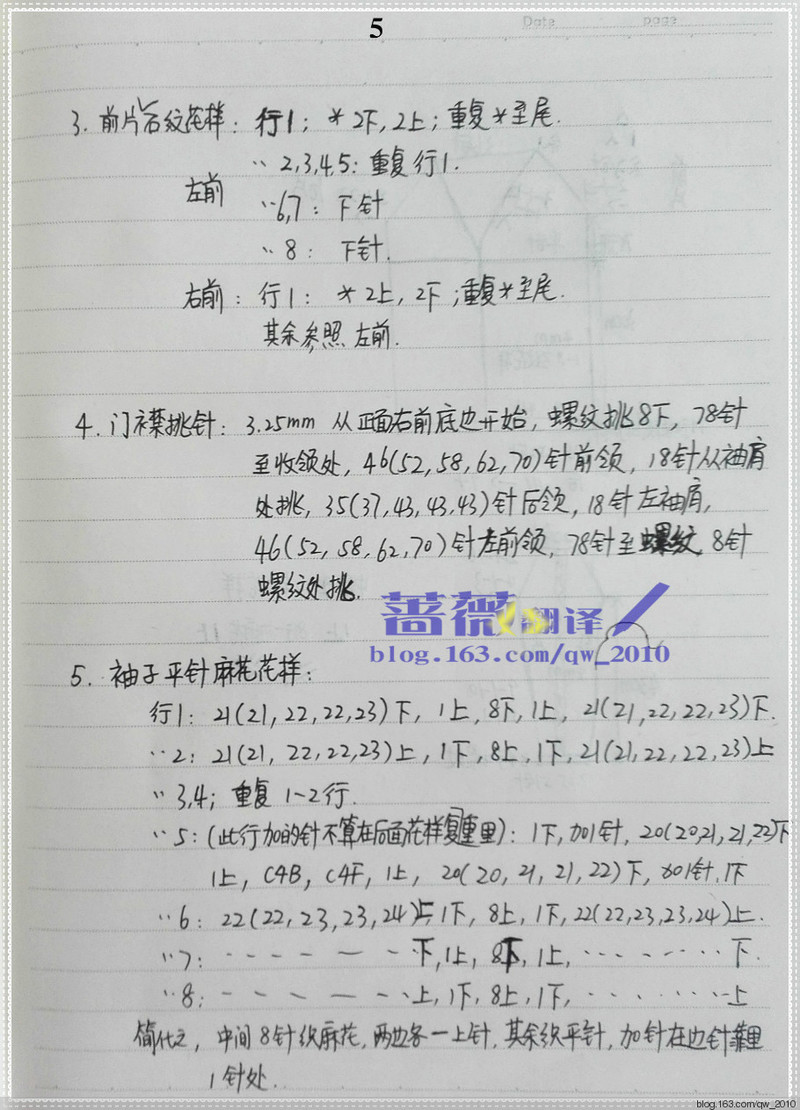 5
Date page
3. 前片石纹花样: 行1; *2下,2上;重复*至尾.
〃 2,3,4,5: 重复行1.
左前
〃6,7: 下针
〃8: 下针.
右前: 行1: *2上, 2下;重复*至尾.
其余参照 左前.
4. 门襟挑针: 3.25mm 从正面右前底边开始, 螺纹挑8下, 78针
至收领处, 46(52,58,62,70)针前领, 18针从袖肩
处挑, 35(37,43,43,43)针后领, 18针左袖肩,
46(52, 58, 62, 70)针左前领, 78针至螺纹 8针
螺纹处挑.
蔷薇翻译
blog.163.com/qw_2010
5. 袖子平针麻花花样:
行1: 21(21, 22, 22, 23)下, 1上, 8下, 1上, 21(21,22,22,23)下.
〃2: 21(21, 22, 22, 23)上, 1下, 8上, 1下, 21(21,22,22,23)上
〃3,4; 重复 1-2行.
〃5:(此行加的针不算在后面花样重复里): 1下, 加1针, 20(20,21,21,22)下
1上, C4B, C4F, 1上, 20(20, 21, 21, 22)下, 加1针, 1下
〃6: 22(22, 23, 23, 24)上, 1下, 8上, 1下, 22(22,23,23,24)上.
〃7: - - - - - - 下, 1上, 8下, 1上, - - - - - - 下.
〃8; - - - - - - 上, 1下, 8上, 1下, - - - - - - 上
简化之, 中间8针织麻花, 两边各一上针, 其余织平针, 加针在边针靠里
1针处.
blog.163.com/qw_2010